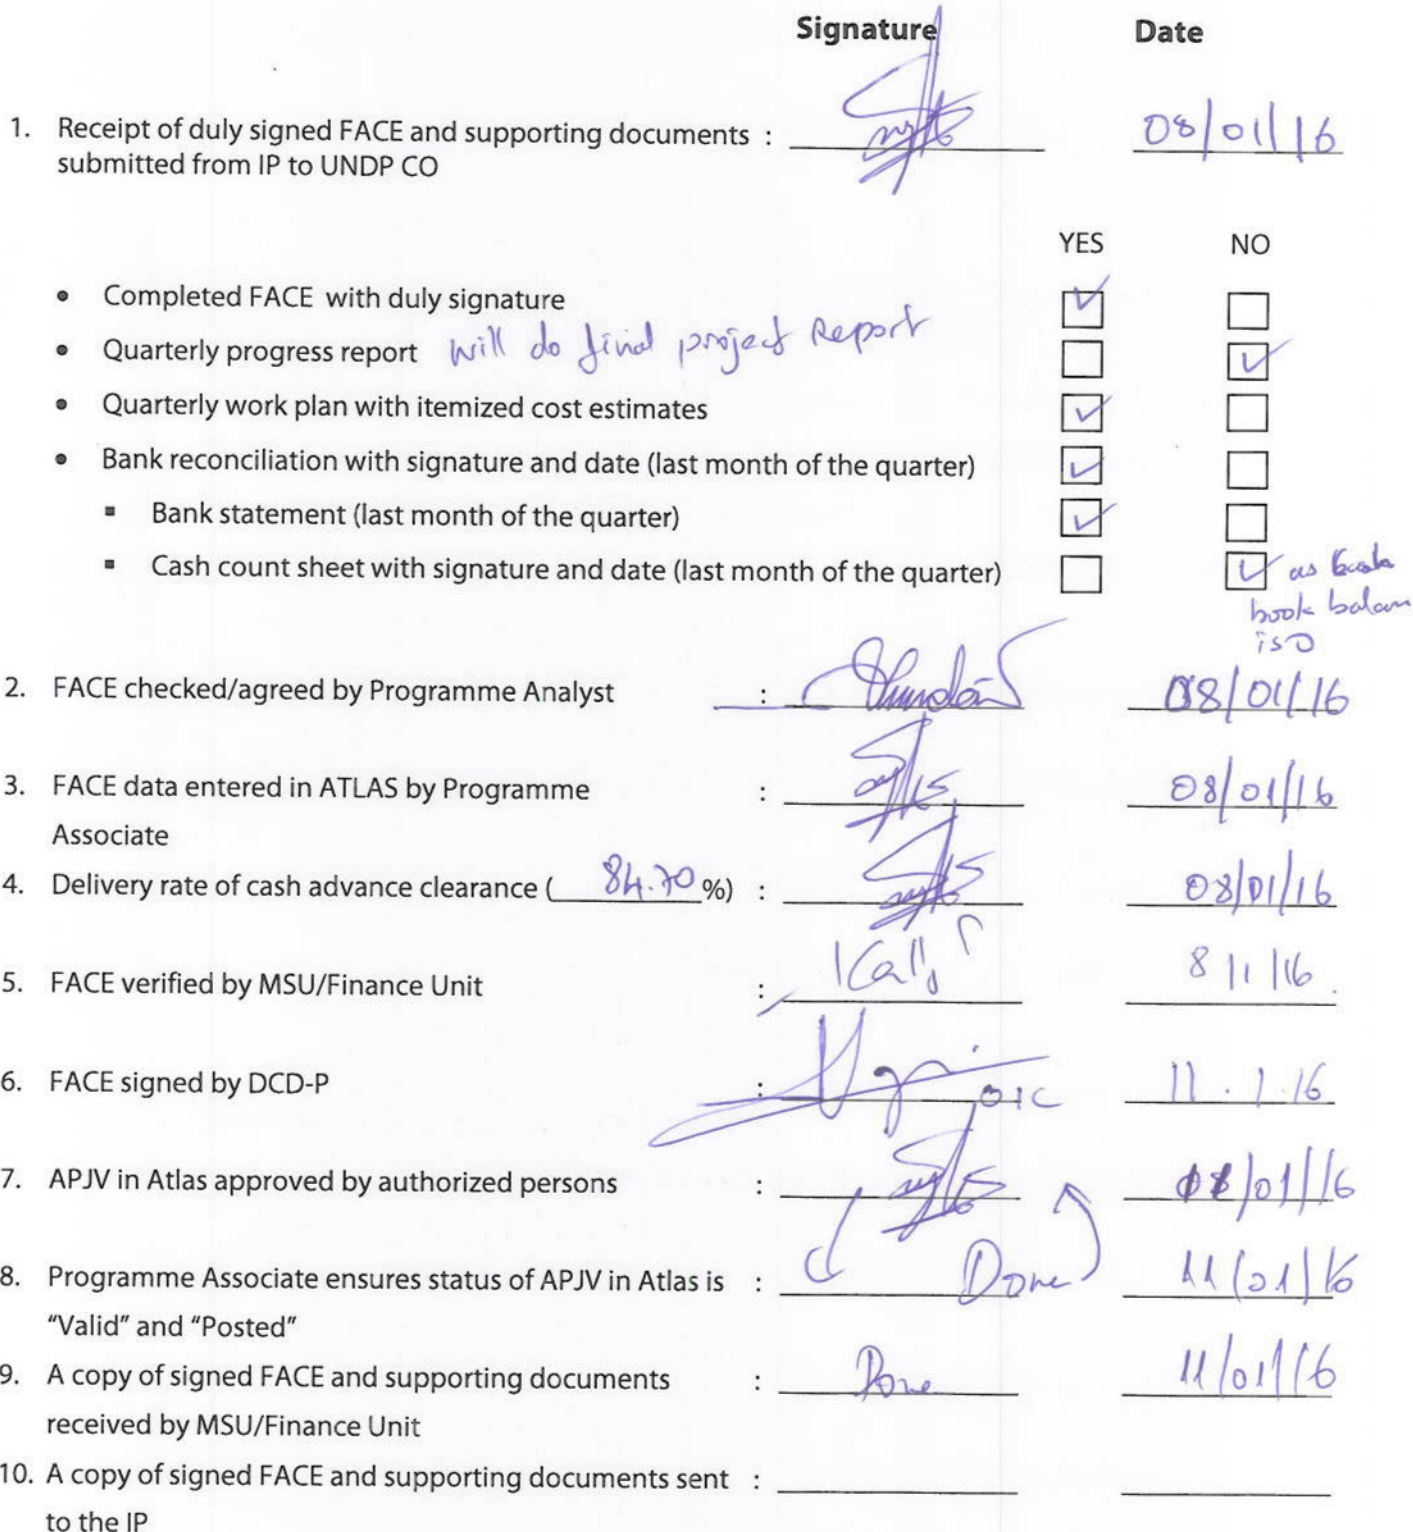 Signature Date
1. Receipt of duly signed FACE and supporting documents : 08/01/16
submitted from IP to UNDP CO
YES NO
• Completed FACE with duly signature
• Quarterly progress report will do final project Report
• Quarterly work plan with itemized cost estimates
• Bank reconciliation with signature and date (last month of the quarter)
▪ Bank statement (last month of the quarter)
▪ Cash count sheet with signature and date (last month of the quarter) as
book balan
is 0
2. FACE checked/agreed by Programme Analyst : 08/01/16
3. FACE data entered in ATLAS by Programme : 08/01/16
Associate
4. Delivery rate of cash advance clearance (84.70%) : 08/01/16
5. FACE verified by MSU/Finance Unit : 8/1/16
6. FACE signed by DCD-P : OIC 11.1.16
7. APJV in Atlas approved by authorized persons : /01/16
8. Programme Associate ensures status of APJV in Atlas is : Done 11/01/16
"Valid" and "Posted"
9. A copy of signed FACE and supporting documents : Done 11/01/16
received by MSU/Finance Unit
10. A copy of signed FACE and supporting documents sent :
to the IP